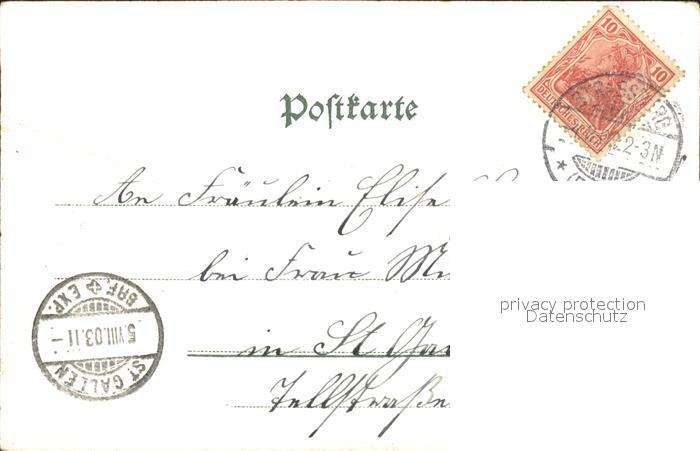 10 10
DEUTSCHES REICH
2-3N
Postkarte
An Fräulein Elise
bei Frau
in St Ga
Tellstraße
privacy protection
Datenschutz
BRF. EXP.
5.VIII.03.11-
ST GALLEN